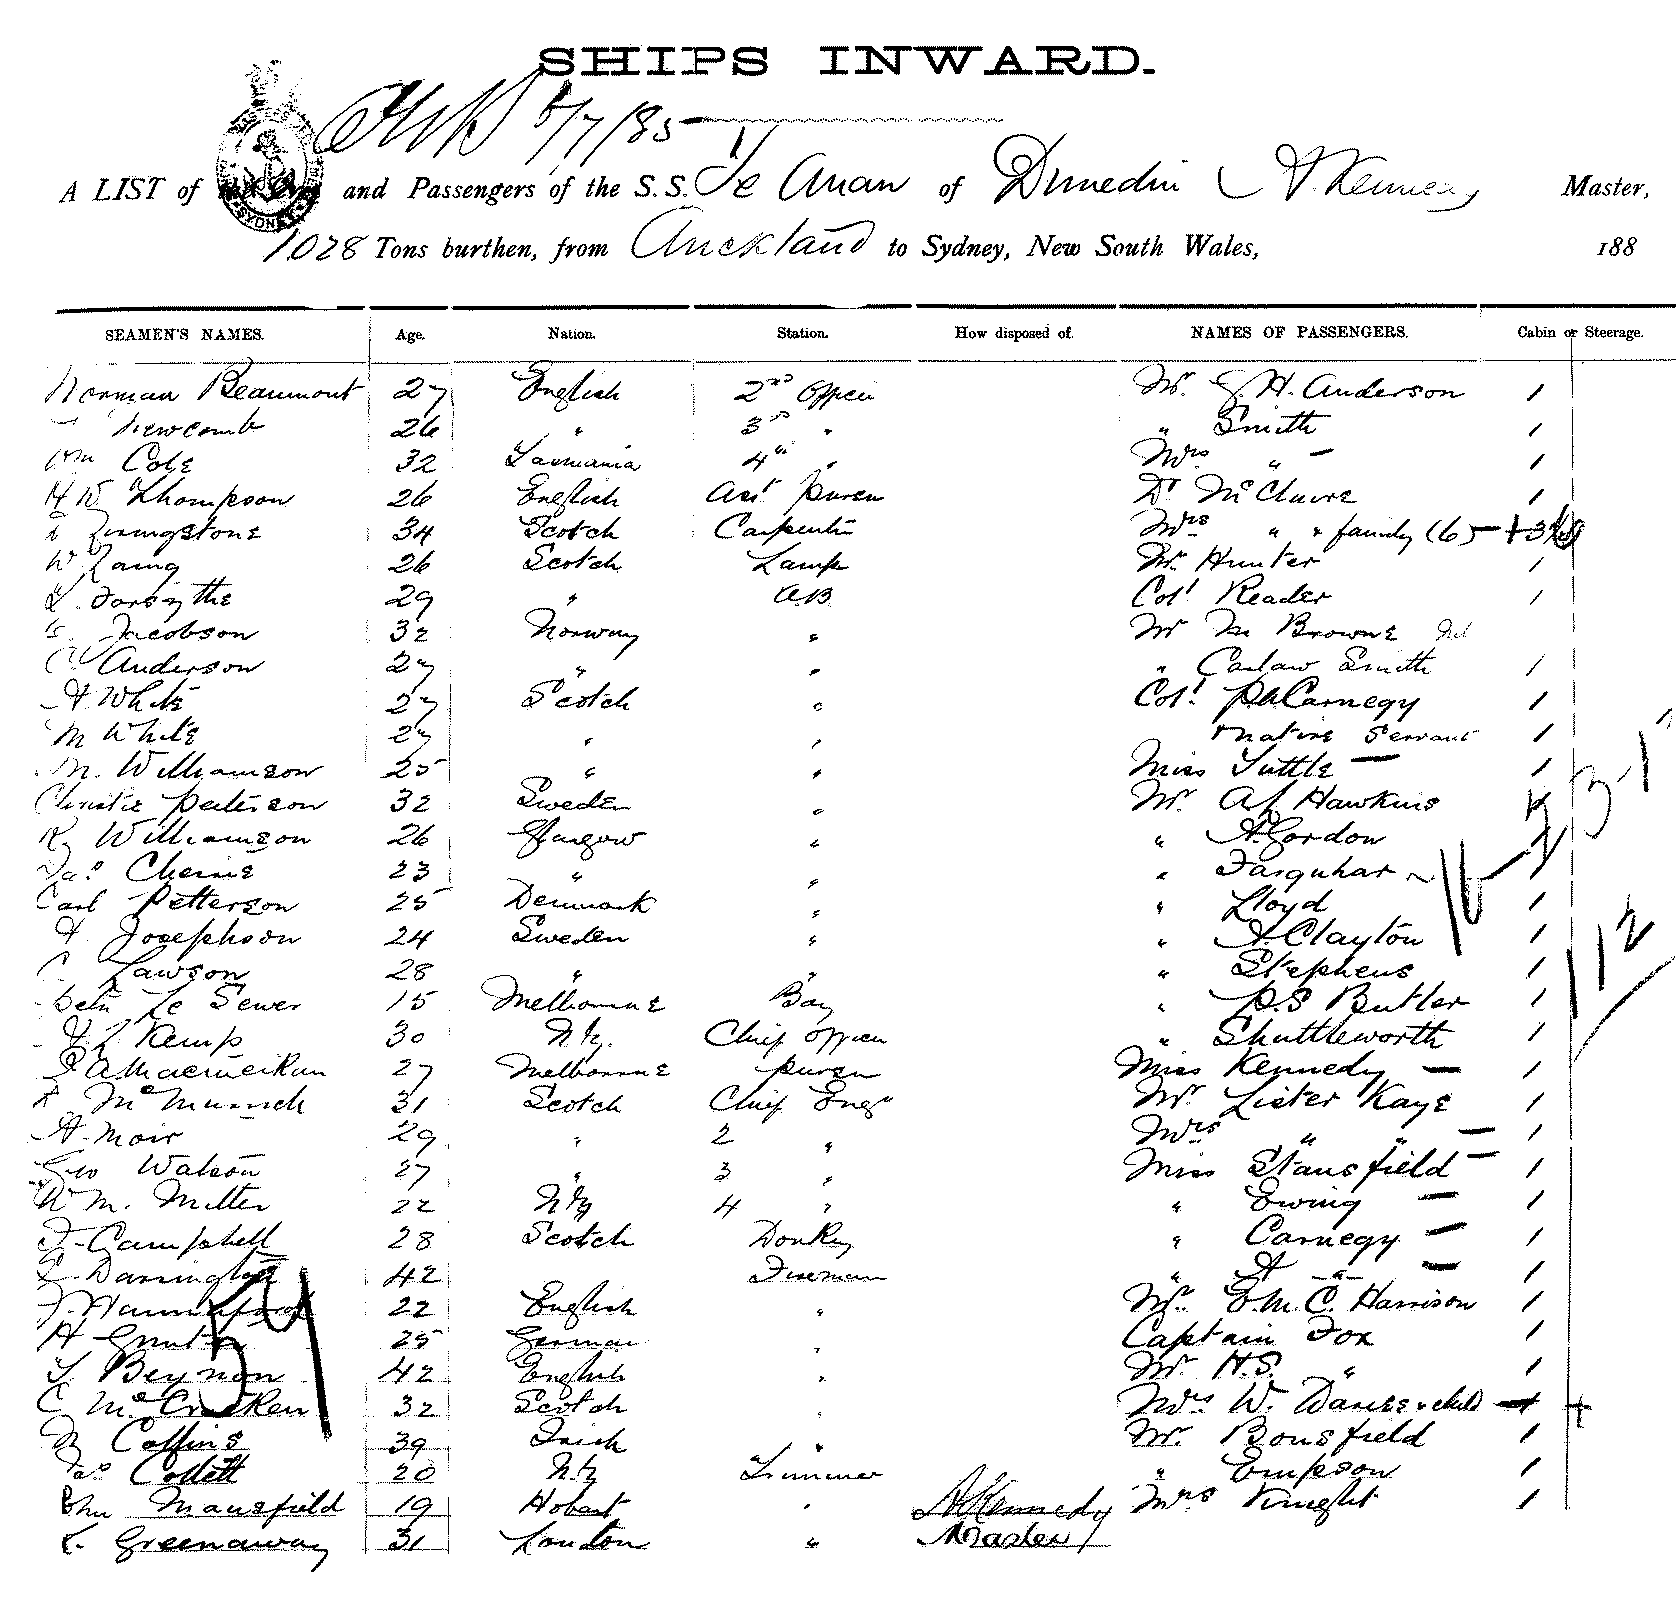 SHIPS INWARD.
/7/85
A LIST of the Crew and Passengers of the S.S. Te Anau of Dunedin A Kennedy Master,
1028 Tons burthen, from Auckland to Sydney, New South Wales, 188
SEAMEN'S NAMES. Age. Nation. Station. How disposed of. NAMES OF PASSENGERS. Cabin or Steerage.
Norman Beaumont 27 English 2nd Officer Mr. G. H. Anderson 1
" Newcomb 26 " 3rd " " Smith 1
Wm Cole 32 Tasmania 4th " Mrs " – 1
H W Thompson 26 English Asst Purser Dr McClure 1
Livingstone 34 Scotch Carpenter Mrs " " family (65 – 1+3
W Laing 26 Scotch Lamp Mr Hunter 1
Forsythe 29 " AB Col. Reader 1
Jacobson 32 Norway " Mr M Browne
C Anderson 27 " " " Carlaw Smith 1
A White 27 Scotch " Col. PA Carnegy 1
M White 27 " " + native Servant 1
M. Williamson 25 " " Miss Tuttle – 1
Christie Peterson 32 Sweden " Mr. A J Hawkins 3-1
R Williamson 26 Glasgow " " A. Gordon
Jas Cherrie 23 " " " Farquhar 16
Carl Petterson 25 Denmark " " Lloyd 1
A Josephson 24 Sweden " " A. Clayton 1 112
C Lawson 28 " " " Stephens 1
Le Sewer 15 Melbourne Boy " P.S Butler 1
Kemp 30 N.Z. Chief Officer " Shuttleworth 1
27 Melbourne Purser Miss Kennedy – 1
McMurrich 31 Scotch Chief Engr Mr. Lister Kaye 1
A. Moir 29 " 2 " Mrs " " – 1
Geo Watson 27 " 3 " Miss Stansfield – 1
W M. Miller 22 NZ 4 " " Ewing – 1
Campbell 28 Scotch Donkey " Carnegy – 1
Darrington 42 Fireman " A " – 1
22 English " Mr. E. M. C. Harrison 1
H 25 German " Captain Fox 1
Beynon 42 English " Mr H.S. " 1
C McCracken 32 Scotch " Mrs W. Danse & child – 1 +
Collins 39 Irish " Mr. Bousfield 1
Jas Collett 20 NZ Trimmer " Empson 1
John Mansfield 19 Hobart " A Kennedy Mrs Knight 1
Greenaway 31 London " Master